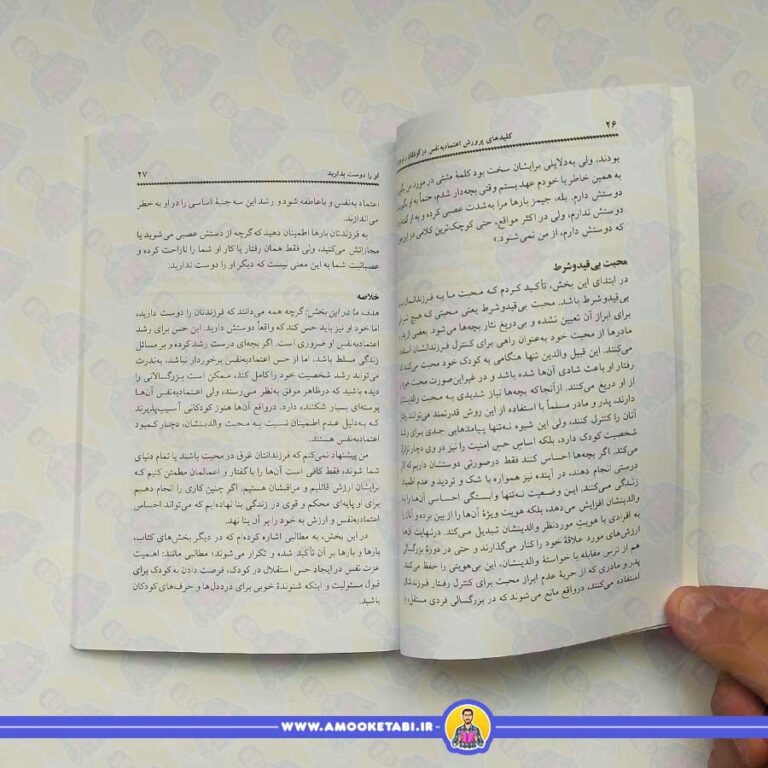 ۲۶
کلیدهای پرورش اعتمادبه‌نفس در کودکان و
بودند، ولی به‌دلایلی برایشان سخت بود کلمهٔ مثبتی در مورد من
به همین خاطر با خودم عهد بستم وقتی بچه‌دار شدم، حتماً به او بگویم
دوستش دارم. بله، جیمز بارها مرا به‌شدت عصبی کرده و به او گفته‌ام
دوستش ندارم، ولی در اکثر مواقع، حتی کوچک‌ترین کلامی در این
که دوستش دارم، از من نمی‌شنود.»
محبت بی‌قیدوشرط
در ابتدای این بخش، تأکید کردم که محبت ما به فرزندانمان
بی‌قیدوشرط باشد. محبت بی‌قیدوشرط یعنی محبتی که هیچ
برای ابراز آن تعیین نشده و بی‌دریغ نثار بچه‌ها می‌شود. بعضی از
مادرها از محبت خود به‌عنوان راهی برای کنترل فرزندانشان استفاده
می‌کنند. این قبیل والدین تنها هنگامی به کودک خود محبت می‌کنند که
رفتار او باعث شادی آن‌ها شده باشد و در غیراین‌صورت محبت خود را
از او دریغ می‌کنند. ازآنجاکه بچه‌ها نیاز شدیدی به محبت والدینشان
دارند، پدر و مادر مسلماً با استفاده از این روش قدرتمند می‌توانند رفتار
آنان را کنترل کنند، ولی این شیوه نه‌تنها پیامدهایی جدی برای رشد
شخصیت کودک دارد، بلکه اساسِ حس امنیت را نیز در وی دچار تزلزل
می‌کند. اگر بچه‌ها احساس کنند فقط درصورتی دوستشان داریم که کار
درستی انجام دهند، در آینده نیز همواره با شک و تردید و عدم اطمینان
زندگی می‌کنند. این وضعیت نه‌تنها وابستگی احساس آن‌ها را به
والدینشان افزایش می‌دهد، بلکه هویت ویژهٔ آن‌ها را از بین برده و آنان را
به افرادی با هویتِ موردنظر والدینشان تبدیل می‌کند. درنهایت آن‌ها
ارزش‌های مورد علاقهٔ خود را کنار می‌گذارند و حتی در دورهٔ بزرگسالی
هم از ترس مقابله با خواستهٔ والدینشان، این بی‌هویتی را حفظ می‌کنند.
پدر و مادری که از حربهٔ عدم ابراز محبت برای کنترل رفتار فرزندشان
استفاده می‌کنند، درواقع مانع می‌شوند که در بزرگسالی فردی مستقل، با
او را دوست بدارید
۲۷
اعتمادبه‌نفس و باعاطفه شود و رشد این سه جنبهٔ اساسی را در او به خطر
می‌اندازند.
به فرزندتان بارها اطمینان دهید که گرچه از دستش عصبی می‌شوید یا
مجازاتش می‌کنید، ولی فقط همان رفتار یا کار او شما را ناراحت کرده و
عصبانیت شما به این معنی نیست که دیگر او را دوست ندارید.
خلاصه
هدف ما در این بخش: گرچه همه می‌دانند که فرزندتان را دوست دارید،
اما خود او نیز باید حس کند که واقعاً دوستش دارید. این حس برای رشد
اعتمادبه‌نفس او ضروری است. اگر بچه‌ای درست رشد کرده و بر مسائل
زندگی مسلط باشد، اما از حس اعتمادبه‌نفس برخوردار نباشد، به‌ندرت
می‌تواند رشد شخصیت خود را کامل کند. ممکن است بزرگسالانی را
دیده باشید که درظاهر موفق به‌نظر می‌رسند، ولی اعتمادبه‌نفس آن‌ها
پوسته‌ای بسیار شکننده دارد. درواقع آن‌ها هنوز کودکانی آسیب‌پذیرند
که به‌دلیل عدم اطمینان نسبت به محبت والدینشان، دچار کمبود
اعتمادبه‌نفس هستند.
من پیشنهاد نمی‌کنم که فرزندانتان غرق در محبت باشند یا تمام دنیای
شما شوند، فقط کافی است آن‌ها را با گفتار و اعمالمان مطمئن کنیم که
برایشان ارزش قائلیم و مراقبشان هستیم. اگر چنین کاری را انجام دهیم
برای او پایه‌ای محکم و قوی در زندگی بنا نهاده‌ایم که می‌تواند احساس
اعتمادبه‌نفس و ارزش به خود را بر آن بنا نهد.
در این بخش، به مطالبی اشاره کرده‌ام که در دیگر بخش‌های کتاب،
بارها و بارها بر آن تأکید شده و تکرار می‌شوند؛ مطالبی مانند: اهمیت
عزت نفس در ایجاد حس استقلال در کودک، فرصت دادن به کودک برای
قبول مسئولیت و اینکه شنوندهٔ خوبی برای درددل‌ها و حرف‌های کودکان
باشید.
WWW.AMOOKETABI.IR